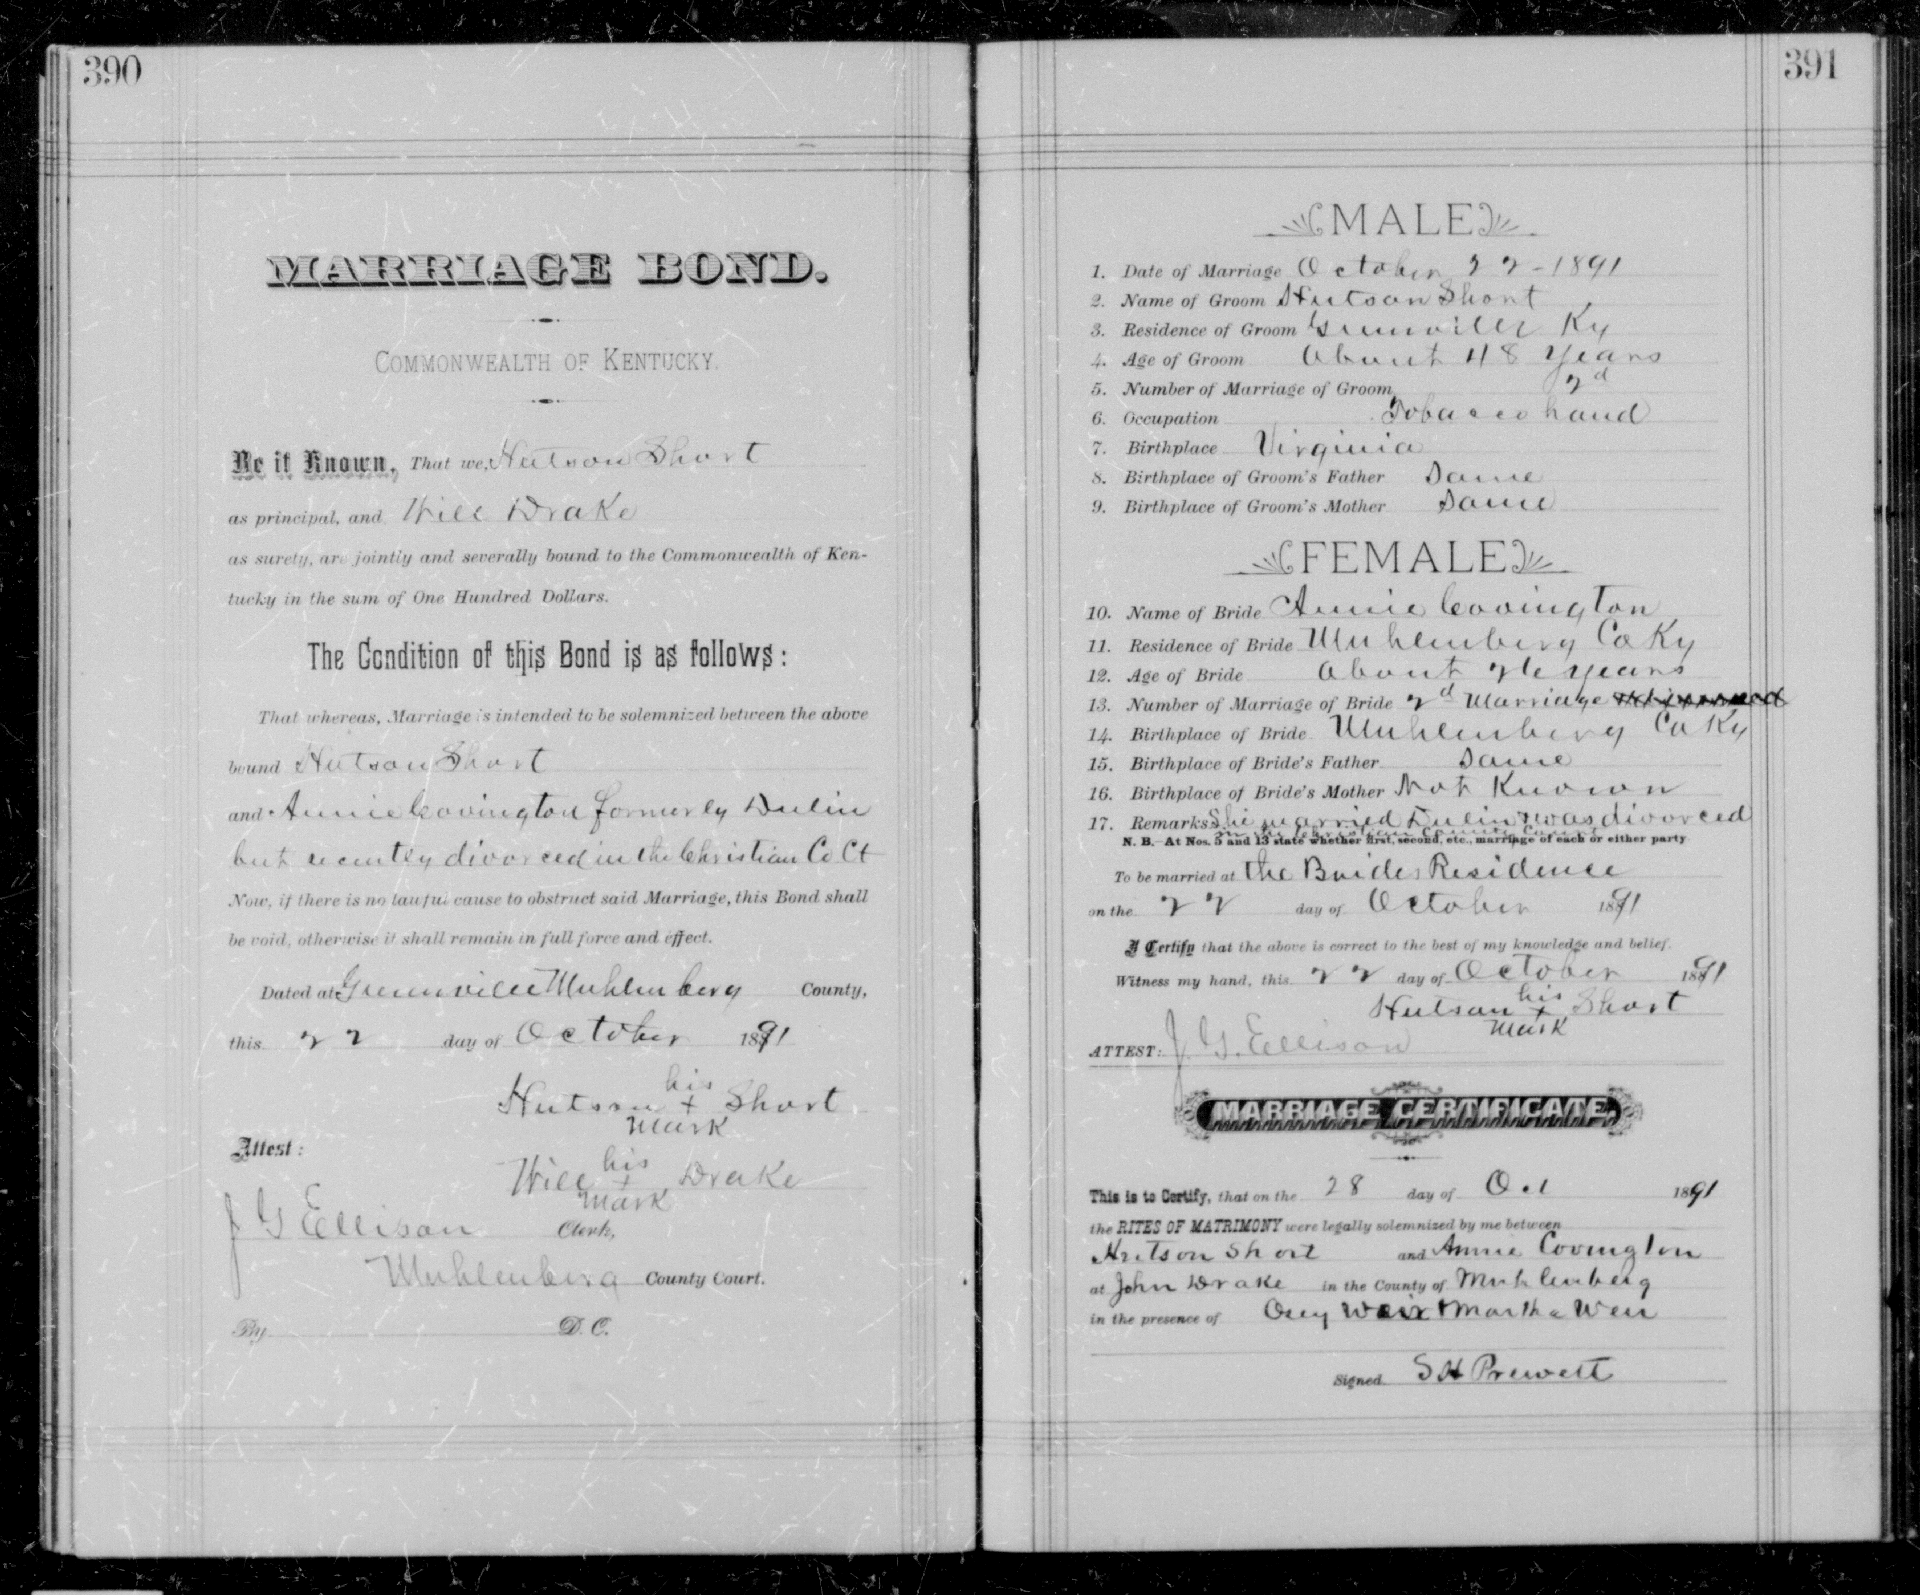 390
MARRIAGE BOND.
COMMONWEALTH OF KENTUCKY.
Be it Known, That we, Hutson Short
as principal, and Will Drake
as surety, are jointly and severally bound to the Commonwealth of Ken-
tucky in the sum of One Hundred Dollars.
The Condition of this Bond is as follows:
That whereas, Marriage is intended to be solemnized between the above
bound Hutson Short
and Annie Covington formerly Dulin
but recently divorced in the Christian Co Ct
Now, if there is no lawful cause to obstruct said Marriage, this Bond shall
be void, otherwise it shall remain in full force and effect.
Dated at Greenville Muhlenberg County,
this 22 day of October 1891
his
Hutson + Short
mark
Attest:
his
Will + Drake
mark
J G Ellison Clerk,
Muhlenberg County Court.
By D. C.
391
MALE
1. Date of Marriage October 22-1891
2. Name of Groom Hutson Short
3. Residence of Groom Greenville Ky
4. Age of Groom About 48 years
5. Number of Marriage of Groom 2d
6. Occupation Tobacco hand
7. Birthplace Virginia
8. Birthplace of Groom's Father Same
9. Birthplace of Groom's Mother Same
FEMALE
10. Name of Bride Annie Covington
11. Residence of Bride Muhlenberg Co Ky
12. Age of Bride About 26 years
13. Number of Marriage of Bride 2d Marriage
14. Birthplace of Bride Muhlenberg Co Ky
15. Birthplace of Bride's Father Same
16. Birthplace of Bride's Mother Not Known
17. Remarks She married Dulin & was divorced
in the Christian County Court
N. B.—At Nos. 5 and 13 state whether first, second, etc., marriage of each or either party
To be married at the Brides Residence
on the 22 day of October 1891
I Certify that the above is correct to the best of my knowledge and belief.
Witness my hand, this 22 day of October 1891
his
Hutson + Short
mark
ATTEST: J. G. Ellison
MARRIAGE CERTIFICATE.
This is to Certify, that on the 28 day of Oct 1891
the RITES OF MATRIMONY were legally solemnized by me between
Hutson Short and Annie Covington
at John Drake in the County of Muhlenberg
in the presence of Weir & Martha Weir
Signed S H Prewett